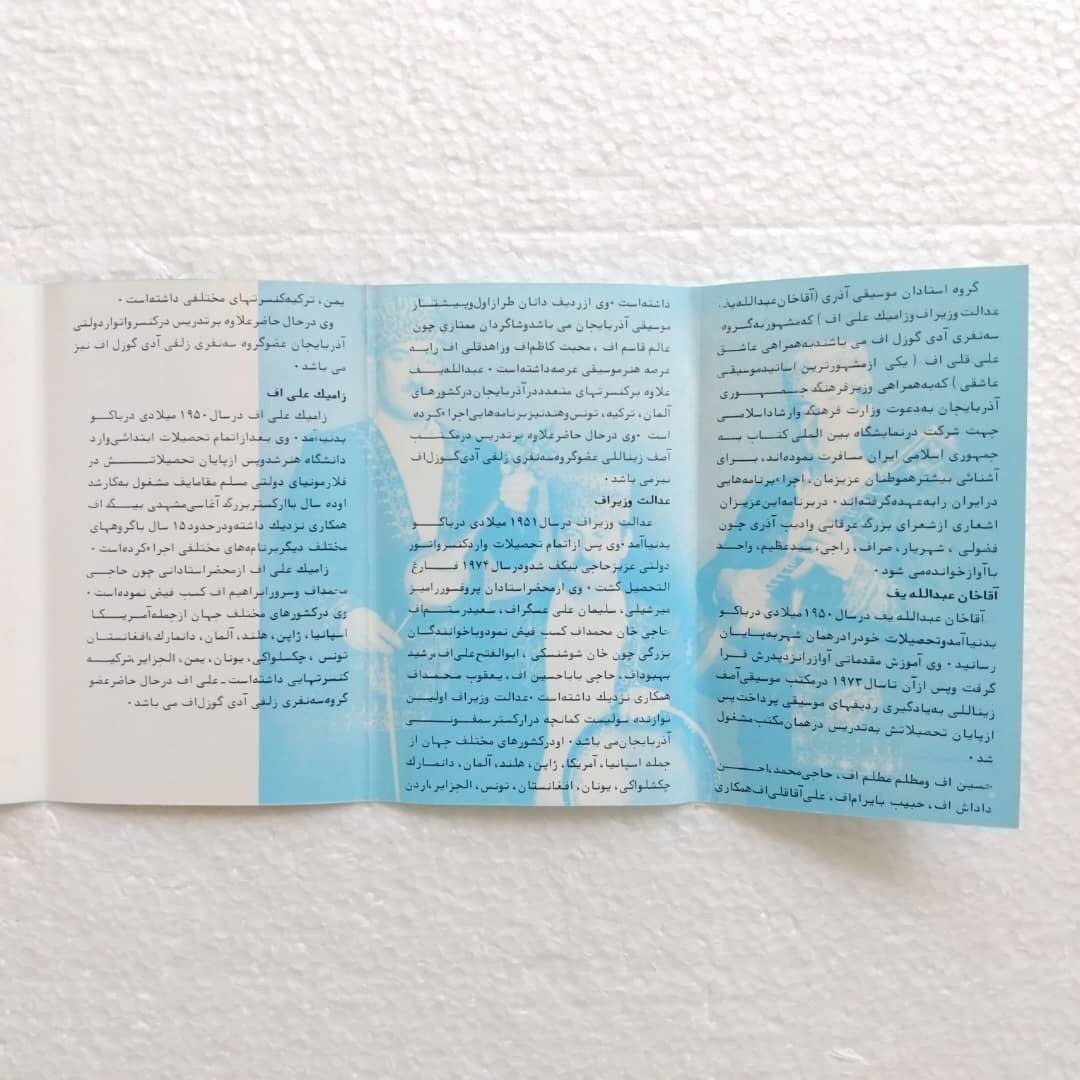 گروه استادان موسیقی آذری (آقاخان عبدالله یف،
عدالت وزیراف وزامیك علی اف ) که مشهور به گروه
سه نفری آدی گوزل اف می باشند به همراهی عاشق
علی قلی اف ( یکی ازمشهورترین اساتید موسیقی
عاشقی ) که به همراهی وزیر فرهنگ جمهوری
آذربایجان به دعوت وزارت فرهنگ وارشاداسلامی
جهت شرکت درنمایشگاه بین المللی کتاب به
جمهوری اسلامی ایران مسافرت نموده اند، برای
آشنائی بیشتر هموطنان عزیزمان، اجراء برنامه هایی
درایران رابه عهده گرفته اند ۰ دربرنامه این عزیزان
اشعاری ازشعرای بزرگ عرفانی وادیب آذری چون
فضولی ، شهریار، صراف، راجی، سیدعظیم، واحد
باآوازخوانده می شود ۰
آقاخان عبدالله یف
آقاخان عبدالله یف درسال ۱۹۵۰ میلادی درباکو
بدنیاآمدوتحصیلات خودرادرهمان شهربه پایان
رسانید ۰ وی آموزش مقدماتی آوازرانزدپدرش فرا
گرفت وپس ازآن تاسال ۱۹۷۳ درمکتب موسیقی آصف
زینا‌للی به یادگیری ردیفهای موسیقی پرداخت پس
ازپایان تحصیلاتش به تدریس درهمان مکتب مشغول
شد ۰
حسین اف ومطلم مطلم اف، حاجی محمد،احسن
داداش اف، حبیب بایرام اف، علی آقاقلی اف همکاری
داشته است ۰ وی ازردیف دانان طرازاول وپیشتاز
موسیقی آذربایجان می باشدوشاگردان ممتازی چون
عالم قاسم اف ، محبت کاظم اف وزاهدقلی اف رابه
عرصه هنرموسیقی عرضه داشته است ۰ عبدالله یف
علاوه برکنسرتهای متعدددرآذربایجان درکشورهای
آلمان، ترکیه، تونس وهندنیزبرنامه هایی اجراء کرده
است ۰ وی درحال حاضرعلاوه برتدریس درمکتب
آصف زینا‌للی عضوگروه سه نفری زلفی آدی گوزل اف
نیزمی باشد ۰
عدالت وزیراف
عدالت وزیراف درسال ۱۹۵۱ میلادی درباکو
بدنیاآمد ۰ وی پس ازاتمام تحصیلات واردکنسرواتور
دولتی عزیزحاجی بیکف شدودرسال ۱۹۷۴ فارغ
التحصیل گشت ۰ وی ازمحضراستادان پروفسوررامیز
میرشیلی، سلیمان علی عسگراف، سعیدرستم اف
حاجی خان محمداف کسب فیض نمودوباخوانندگان
بزرگی چون خان شوشنسکی ، ابوالفتح علی اف،رشید
بهبوداف، حاجی باباحسین اف، یعقوب محمداف
همکاری نزدیك داشته است ۰ عدالت وزیراف اولین
نوازنده سولیست کمانچه درارکسترسمفونی
آذربایجان می باشد ۰ اودرکشورهای مختلف جهان از
جمله اسپانیا، آمریکا، ژاپن، هلند، آلمان، دانمارك
چکسلواکی، یونان، افغانستان، تونس، الجزایر،اردن
یمن، ترکیه کنسرتهای مختلفی داشته است ۰
وی درحال حاضرعلاوه برتدریس درکنسرواتواردولتی
آذربایجان عضوگروه سه نفری زلفی آدی گوزل اف نیز
می باشد ۰
زامیك علی اف
زامیك علی اف درسال ۱۹۵۰ میلادی درباکو
بدنیاآمد ۰ وی بعدازاتمام تحصیلات ابتدائی وارد
دانشگاه هنرشدوپس ازپایان تحصیلاتش در
فلارمونیای دولتی مسلم مقامایف مشغول به کارشد
اوده سال باارکستربزرگ آغاسی مشهدی بیگ اف
همکاری نزدیك داشته ودرحدود۱۵ سال باگروههای
مختلف دیگربرنامه های مختلفی اجراء کرده است ۰
زامیك علی اف ازمحضراستادانی چون حاجی
محمداف وسرورابراهیم اف کسب فیض نموده است ۰
وی درکشورهای مختلف جهان ازجمله آمریکا
اسپانیا، ژاپن، هلند، آلمان، دانمارك،افغانستان
تونس ، چکسلواکی، یونان، یمن، الجزایر،ترکیه
کنسرتهایی داشته است ـ علی اف درحال حاضرعضو
گروه سه نفری زلفی آدی گوزل اف می باشد ۰